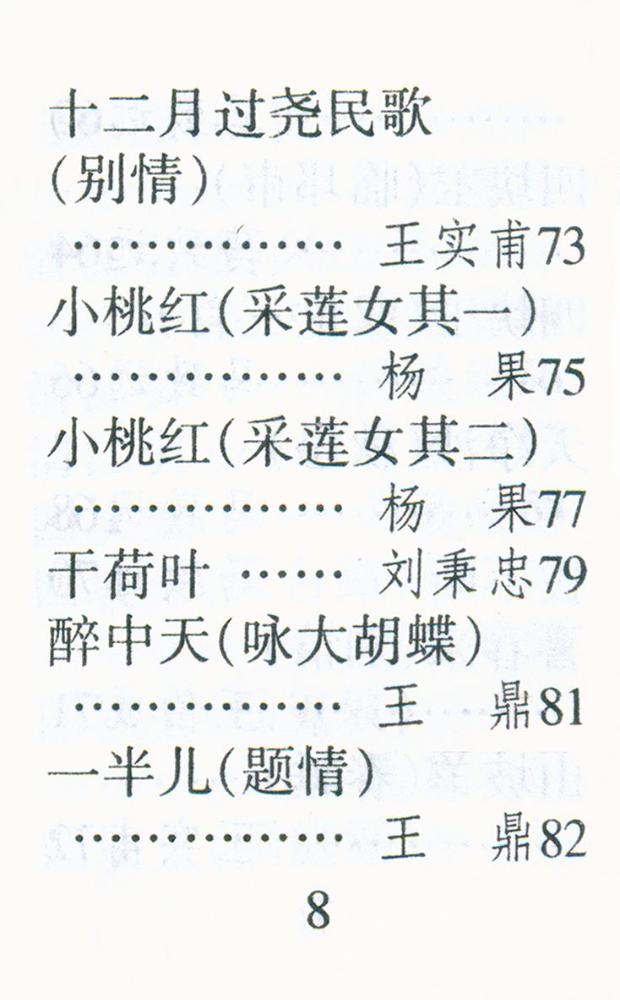 十二月过尧民歌
(别情)
…………… 王实甫73
小桃红(采莲女其一)
…………… 杨 果75
小桃红(采莲女其二)
…………… 杨 果77
干荷叶 …… 刘秉忠79
醉中天(咏大胡蝶)
…………… 王 鼎81
一半儿(题情)
…………… 王 鼎82
8